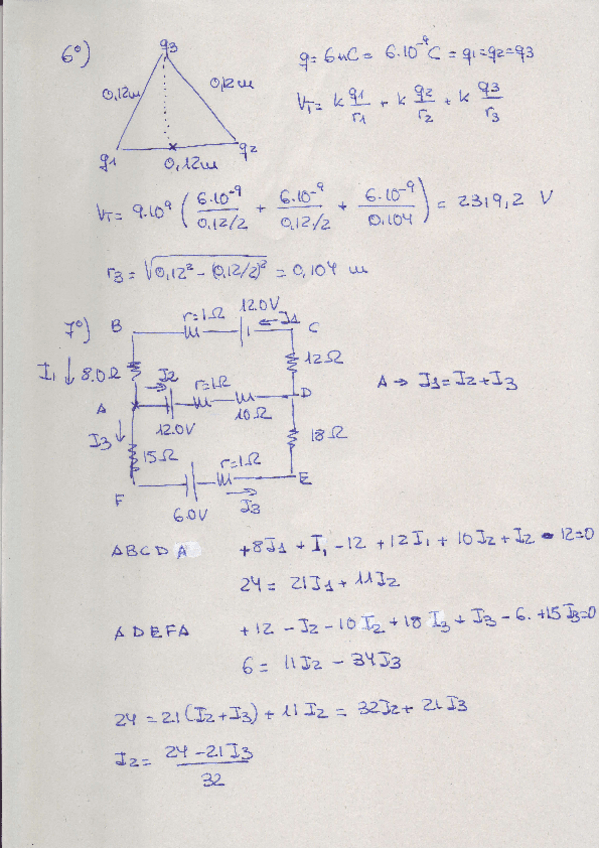 6º)
q3
0,12m 0,12m
q1 0,12m q2
q = 6nC = 6.10⁻⁹C = q1=q2=q3
VT = k q1/r1 + k q2/r2 + k q3/r3
VT = 9.10⁹ ( 6.10⁻⁹/0,12/2 + 6.10⁻⁹/0,12/2 + 6.10⁻⁹/0,104 ) = 2319,2 V
r3 = √(0,12² - (0,12/2)²) = 0,104 m
7º) B r=1Ω 12.0V I1 C
I1 ↓ 8.0Ω I2 r=1Ω 12Ω
A 12.0V 10Ω D
A → I1 = I2 + I3
I3 15Ω 18Ω
F 6.0V r=1Ω I3 E
ABCDA +8I1 + I1 -12 + 12I1 + 10I2 + I2 - 12=0
24 = 21I1 + 11I2
ADEFA +12 - I2 - 10I2 + 18I3 + I3 - 6. + 15I3=0
6 = 11I2 - 34I3
24 = 21(I2+I3) + 11I2 = 32I2 + 21I3
I2 = 24 - 21I3 / 32